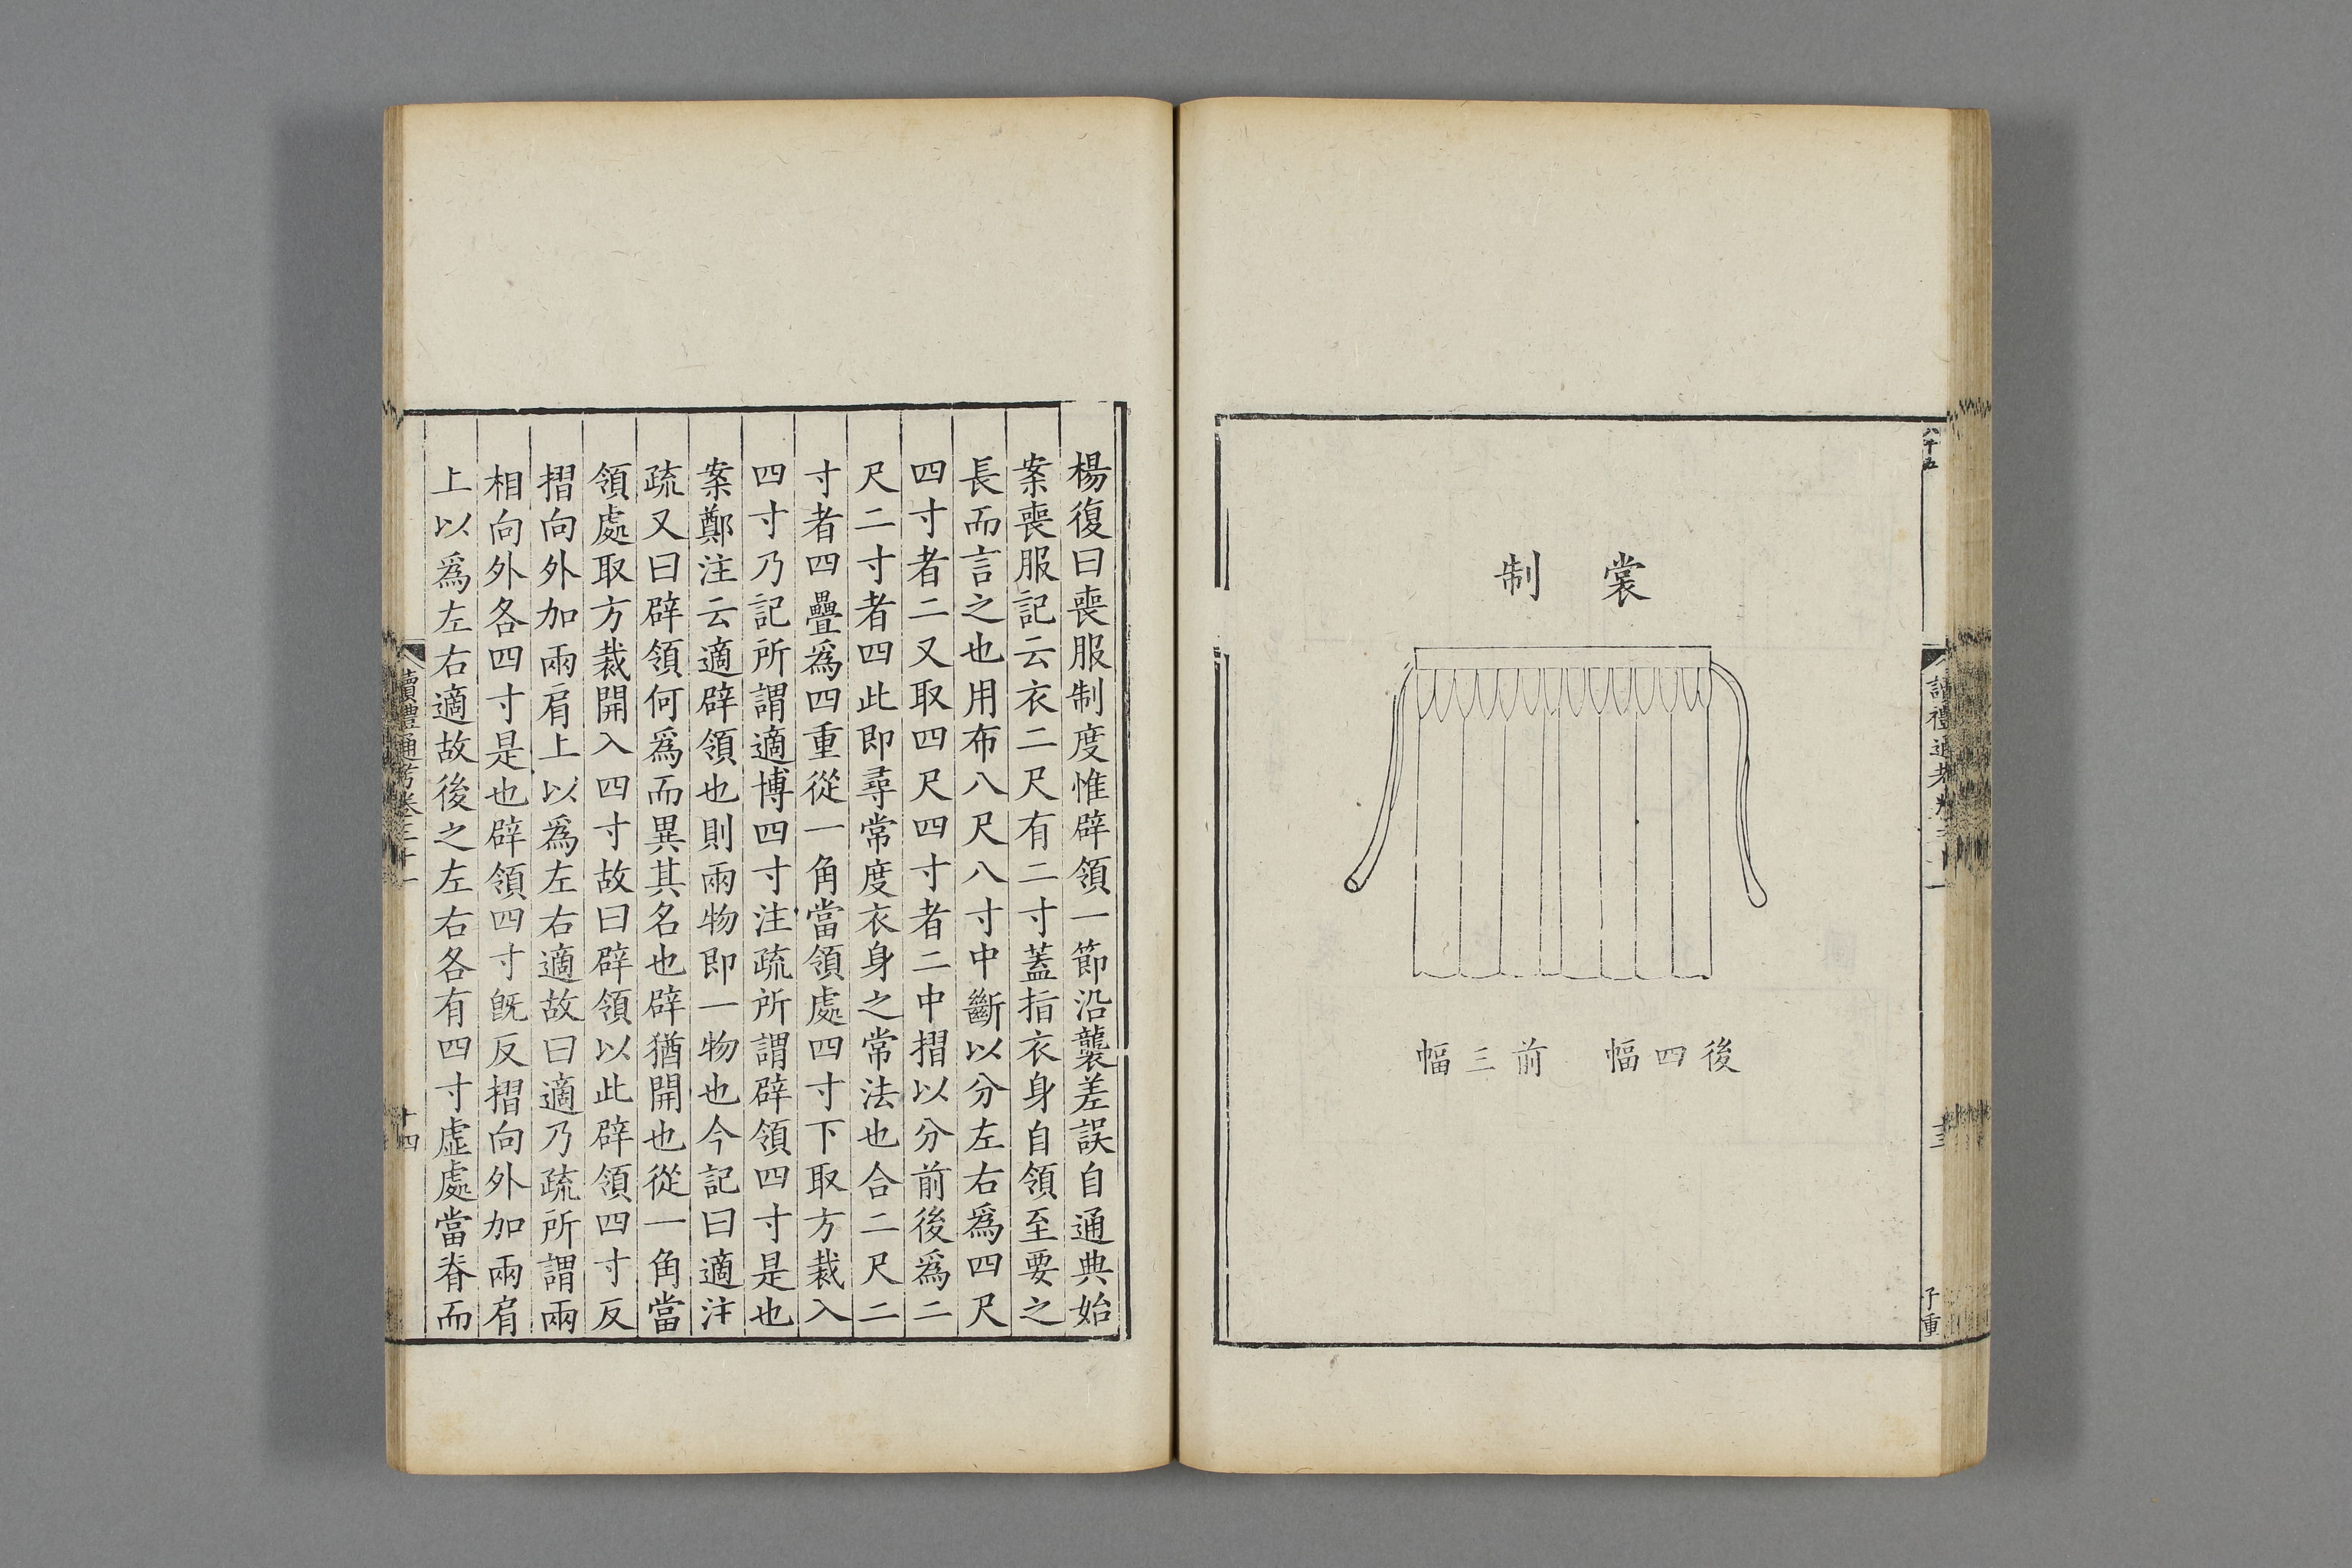 裳制
後四幅 前三幅
楊復曰喪服制度惟辟領一節沿襲差誤自通典始
案喪服記云衣二尺有二寸蓋指衣身自領至要之
長而言之也用布八尺八寸中斷以分左右爲四尺
四寸者二又取四尺四寸者二中摺以分前後爲二
尺二寸者四此即尋常度衣身之常法也合二尺二
寸者四疊爲四重從一角當領處四寸下取方裁入
四寸乃記所謂適博四寸注疏所謂辟領四寸是也
案鄭注云適辟領也則兩物即一物也今記曰適注
疏又曰辟領何爲而異其名也辟猶開也從一角當
領處取方裁開入四寸故曰辟領以此辟領四寸反
摺向外加兩肩上以爲左右適故曰適乃疏所謂兩
相向外各四寸是也辟領四寸旣反摺向外加兩肩
上以爲左右適故後之左右各有四寸虛處當脊而
讀禮通考卷三十一
十四